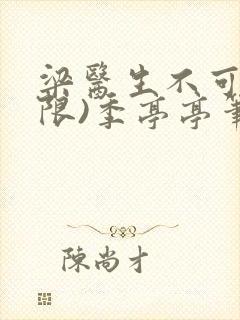 梁醫生不可
限)季亭亭筆
陳尚才